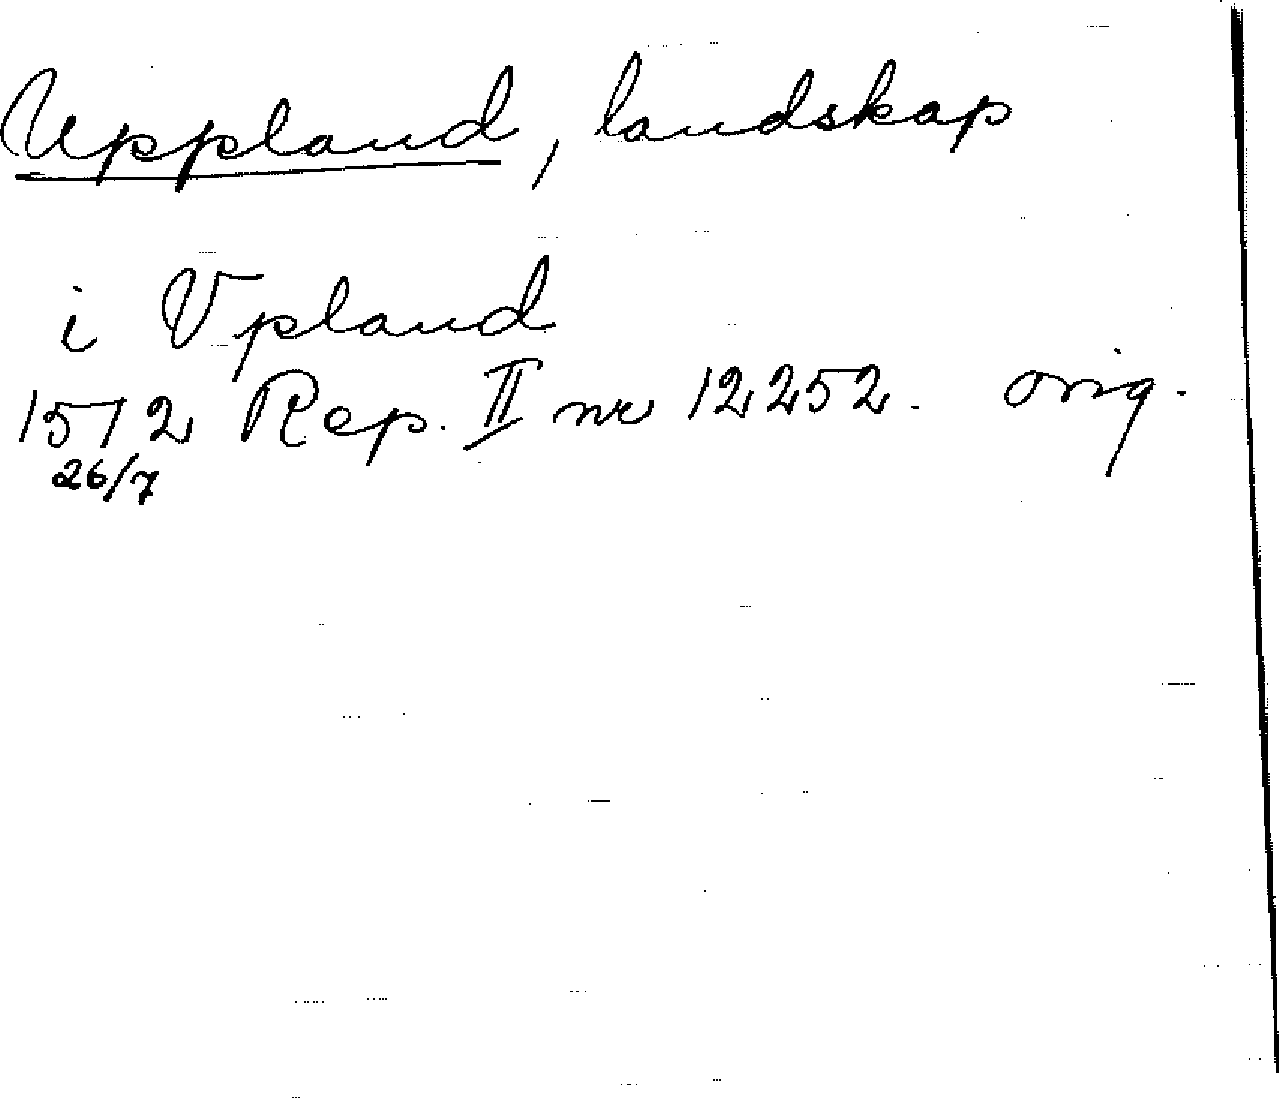 Uppland, landskap
i Vpland
1512 Rep. II nr 12252. orig.
26/7